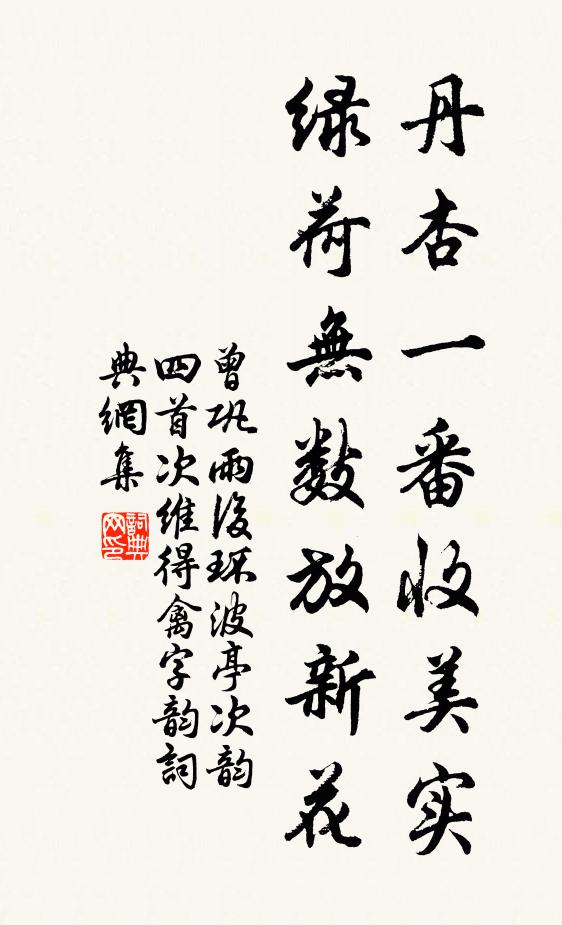 丹杏一番收美实
绿荷無数放新花
曾巩雨後环波亭次韵
四首次维得禽字韵詞
典網集
詞典网印